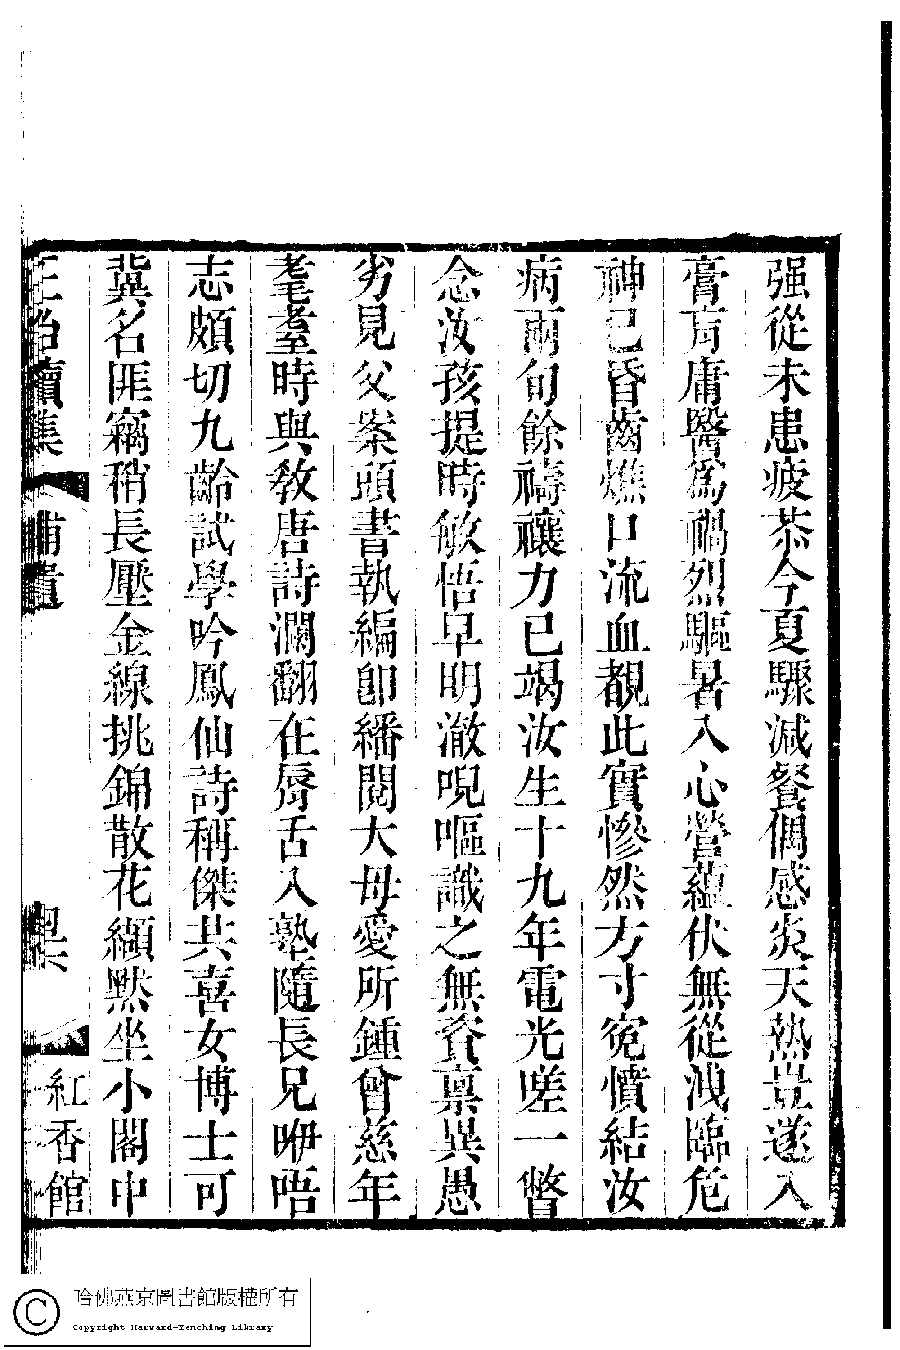 强從未患疲苶今夏驟減餐偶感炎天熱豈遂入
膏肓庸醫爲禍烈驅暑入心營蘊伏無從洩臨危
神已昏齒燋口流血覩此實慘然方寸寃憤結汝
病兩旬餘禱禳力已竭汝生十九年電光嗟一瞥
念汝孩提時敏悟早明澈唲嘔識之無資禀異愚
劣見父案頭書執編卽繙閱大母愛所鍾曾慈年
耄耋時與敎唐詩瀾翻在脣舌入塾隨長兄咿唔
志頗切九齡試學吟鳳仙詩稱傑共喜女博士可
冀名匪竊稍長壓金線挑錦散花纈默坐小閣中
續集
補遺
紅香館
哈佛燕京圖書館版權所有
Copyright Harvard-Yenching Library